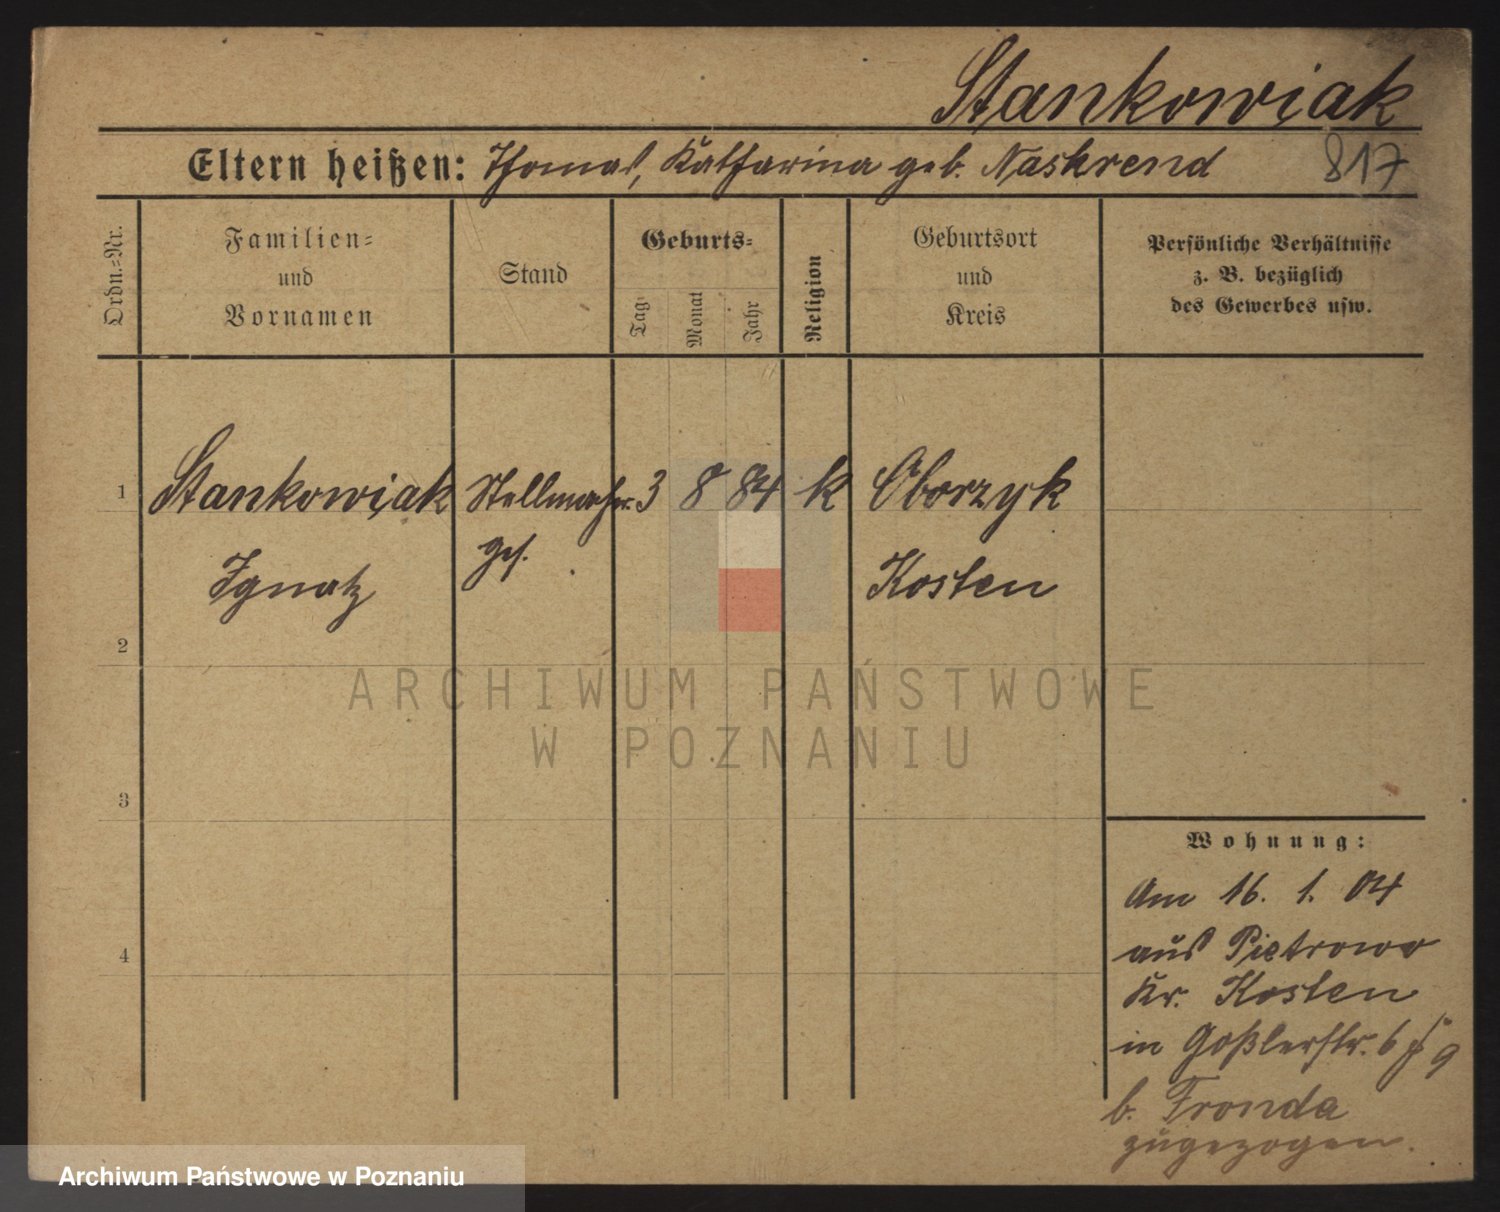 Stankowiak
Eltern heißen: Thomas, Katharina geb. Naskrend 817
Ordn.-Nr.
Familien-
und
Vornamen
Stand
Geburts-
Tag
Monat
Jahr
Religion
Geburtsort
und
Kreis
Persönliche Verhältnisse
z. B. bezüglich
des Gewerbes usw.
1 Stankowiak Stellmacher 3 8 84 k Oborzyk
Ignatz ges. Kosten
2
ARCHIWUM PAŃSTWOWE
W POZNANIU
3
4
Wohnung:
Am 16. 1. 04
aus Pietrowo
Kr. Kosten
in Goßlerstr. 6
b. Fronda
zugezogen.
Archiwum Państwowe w Poznaniu